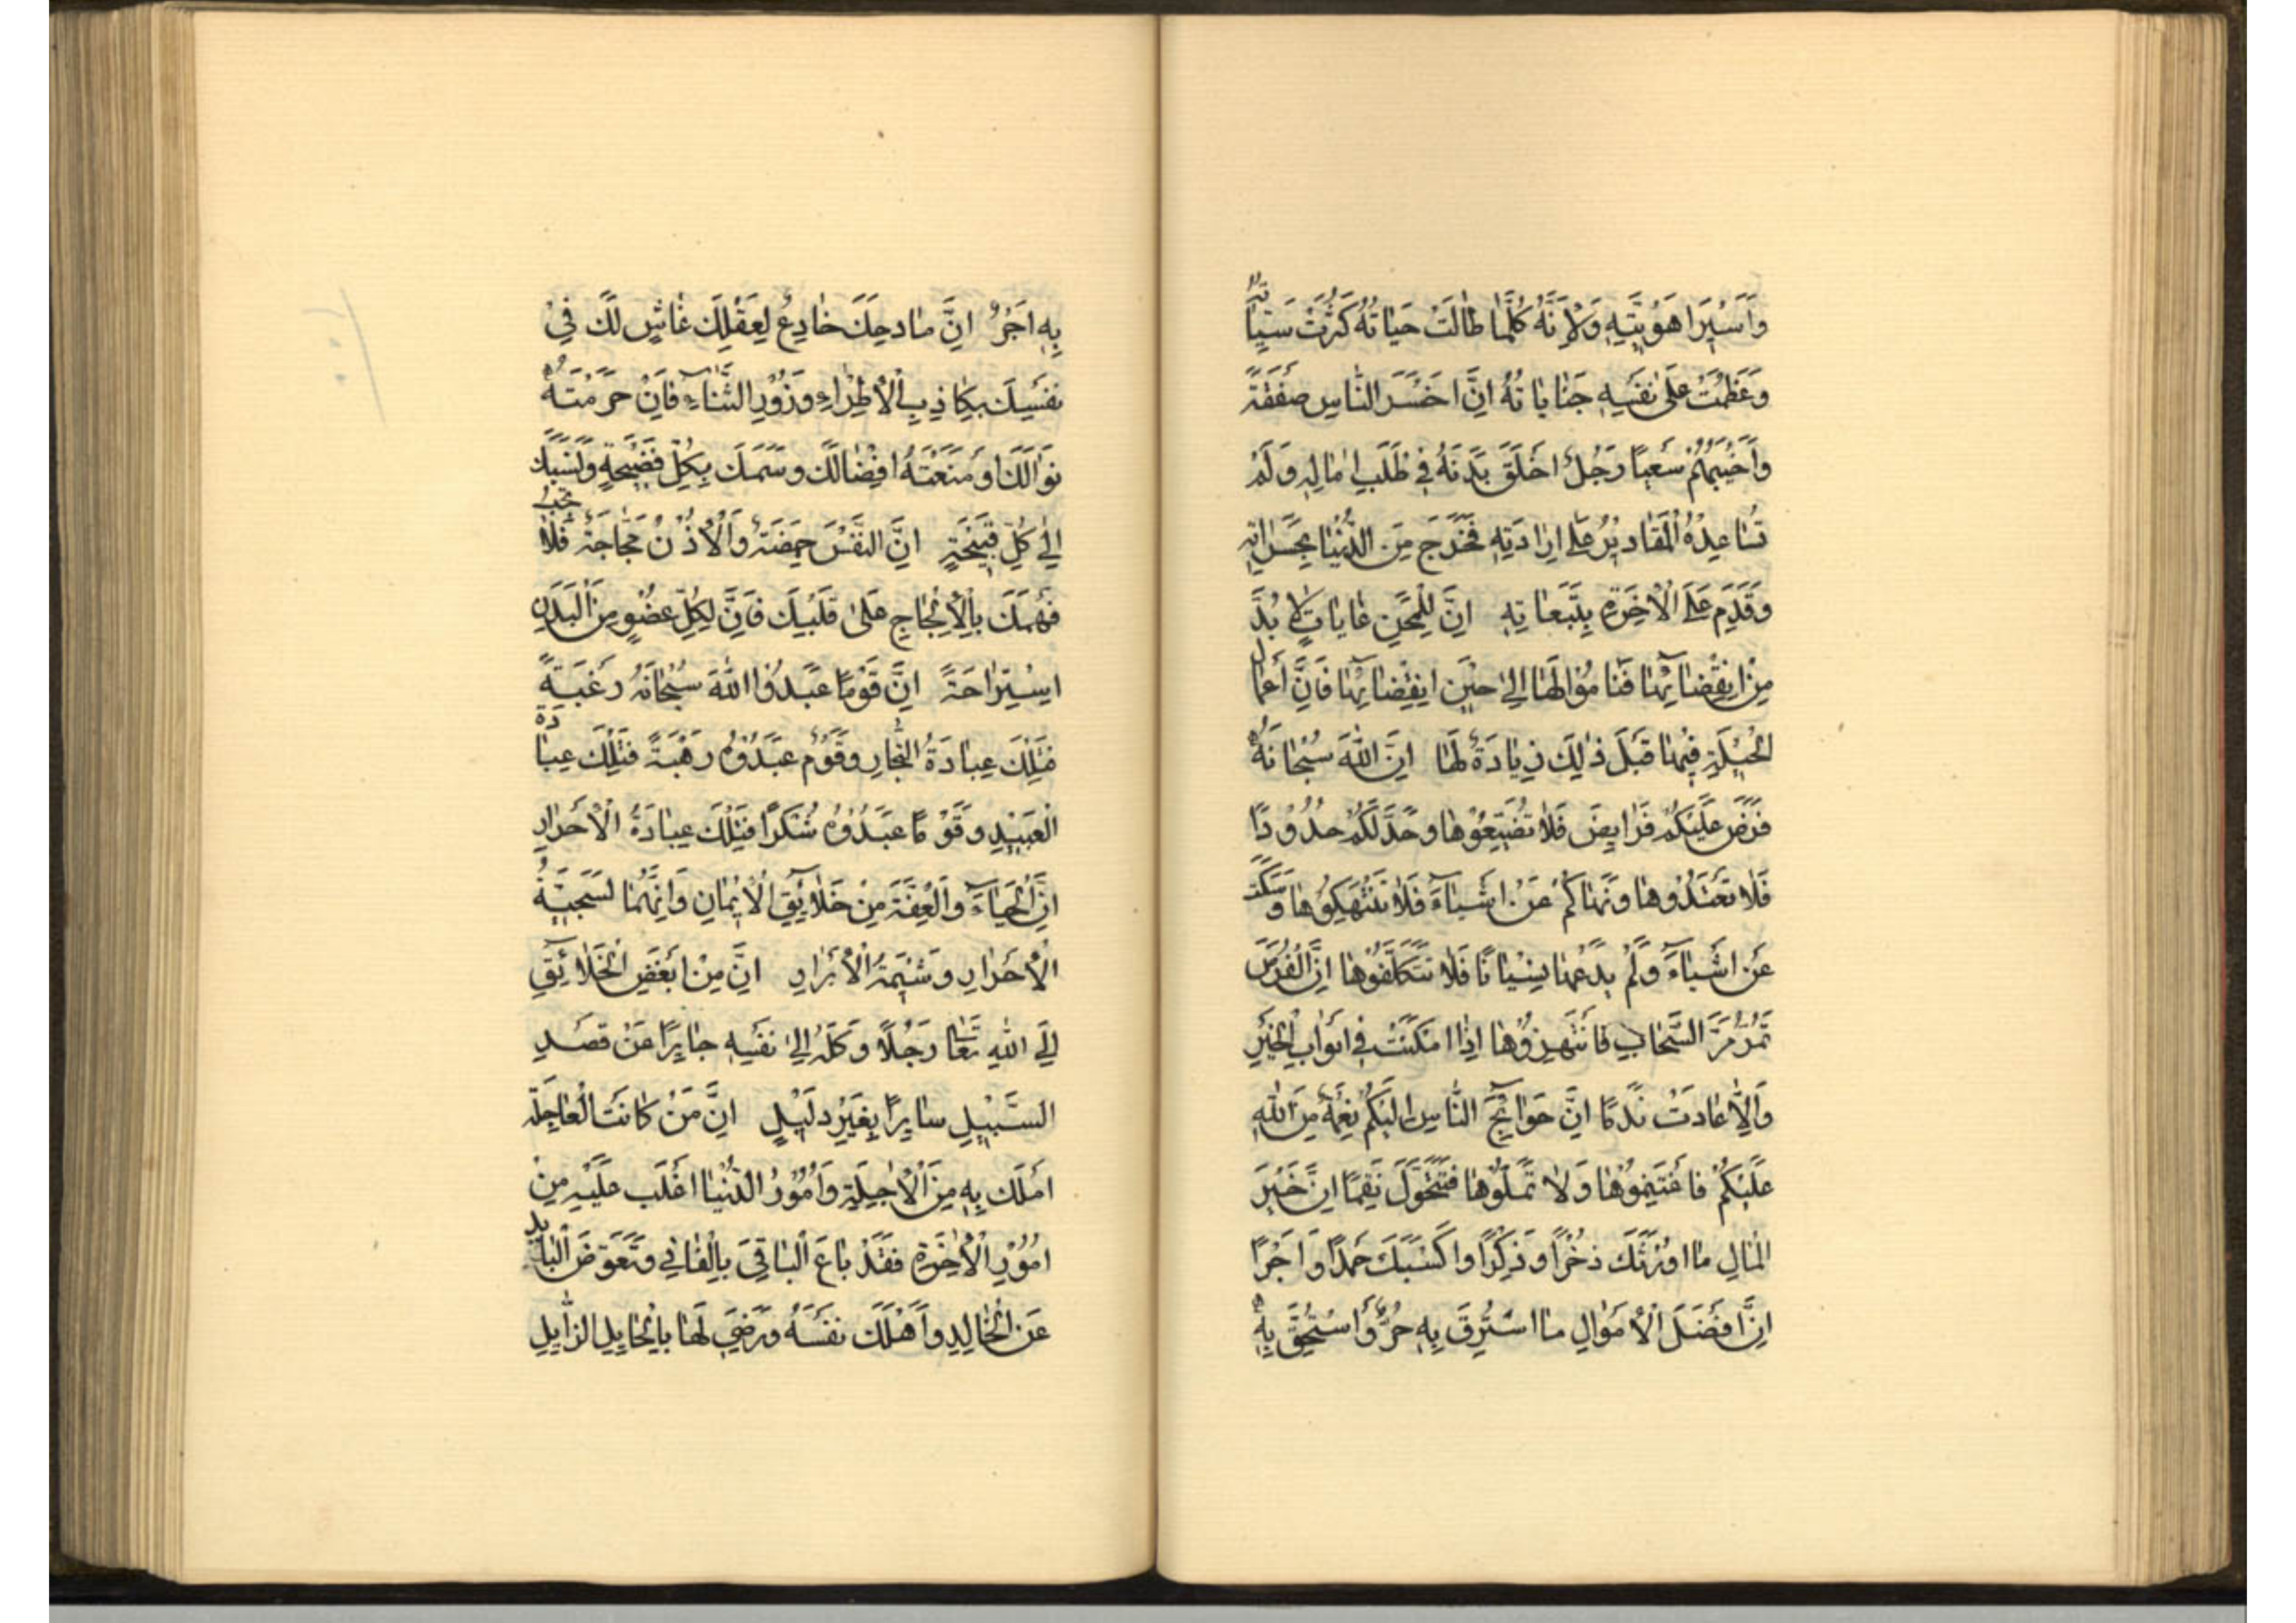 وَاَسِيرَا هَوِيَّتِهِ وَلِاَنَّهُ كُلَّمَا طَالَتْ حَيَاتُهُ كَثُرَتْ سَيِّئَاتُهُ
وَعَظُمَتْ عَلٰى نَفْسِهِ جَنَايَاتُهُ اِنَّ اَخْسَرَ النَّاسِ صَفْقَةً
وَاَخْيَبَهُمْ سَعْيًا رَجُلٌ اَخْلَقَ بَدَنَهُ فِي طَلَبِ اٰمَالِهِ وَلَمْ
تُسَاعِدْهُ الْمَقَادِيرُ عَلٰى اِرَادَتِهِ فَخَرَجَ مِنَ الدُّنْيَا بِحَسَرَاتِهِ
وَقَدِمَ عَلَى الْاٰخِرَةِ بِتَبَعَاتِهِ اِنَّ لِلْمِحَنِ غَايَاتٍ لَا بُدَّ
مِنْ اِنْقِضَائِهَا فَنَامُوا لَهَا اِلٰى حِيْنِ اِنْقِضَائِهَا فَاِنَّ اِعْمَال
الْحِيْلَةِ فِيْهَا قَبْلَ ذٰلِكَ زِيَادَةٌ لَهَا اِنَّ اللّٰهَ سُبْحَانَهُ
فَرَضَ عَلَيْكُمْ فَرَايِضَ فَلَا تُضَيِّعُوْهَا وَحَدَّ لَكُمْ حُدُوْدًا
فَلَا تَعْتَدُوْهَا وَنَهَاكُمْ عَنْ اَشْيَآءَ فَلَا تَنْتَهِكُوْهَا وَسَكَتَ
عَنْ اَشْيَاءَ وَلَمْ يَدَعْهَا نِسْيَانًا فَلَا تَتَكَلَّفُوْهَا اِنَّ الْفُرَصَ
تَمُرُّ مَرَّ السَّحَابِ فَانْتَهِزُوْهَا اِذَا اَمْكَنَتْ فِي اَبْوَابِ الْخَيْرِ
وَاِلَّا عَادَتْ نَدَمًا اِنَّ حَوَآئِجَ النَّاسِ اِلَيْكُمْ نِعْمَةٌ مِنَ اللّٰهِ
عَلَيْكُمْ فَاغْتَنِمُوْهَا وَلَا تَمَلُّوْهَا فَتَتَحَوَّلَ نِقَمًا اِنَّ خَيْرَ
الْمَالِ مَا اَوْرَثَكَ ذُخْرًا وَذِكْرًا وَاَكْسَبَكَ حَمْدًا وَاَجْرًا
اِنَّ اَفْضَلَ الْاَمْوَالِ مَا اسْتُرِقَّ بِهِ حُرٌّ وَاسْتُحِقَّ بِهِ
بِهِ اَجْرٌ اِنَّ مَادِحَكَ خَادِعٌ لِعَقْلِكَ غَاشٍّ لَكَ فِيْ
نَفْسِكَ بِكَاذِبِ الْاِطْرَاءِ وَزُوْرِ الثَّنَآءِ فَاِنْ حَرَمْتَهُ
نَوَالَكَ اَوْ مَنَعْتَهُ اِفْضَالَكَ وَسَمَكَ بِكُلِّ فَضِيْحَةٍ وَنَسَبَكَ
اِلٰى كُلِّ قَبِيْحَةٍ اِنَّ النَّفْسَ حَمِضَةٌ وَالْاُذُنُ مَجَّاجَةٌ فَلَا تَجُبَّ
فَهْمَكَ بِالْاِلْحَاحِ عَلٰى قَلْبِكَ فَاِنَّ لِكُلِّ عُضْوٍ مِنَ الْبَدَنِ
اِسْتِرَاحَةً اِنَّ قَوْمًا عَبَدُوْا اللّٰهَ سُبْحَانَهُ رَغْبَةً
فَتِلْكَ عِبَادَةُ التُّجَّارِ وَقَوْمٌ عَبَدُوْهُ رَهْبَةً فَتِلْكَ عِبَادَةُ
الْعَبِيْدِ وَقَوْمًا عَبَدُوْهُ شُكْرًا فَتِلْكَ عِبَادَةُ الْاَحْرَارِ
اِنَّ الْحَيَآءَ وَالْعِفَّةَ مِنْ خَلَآئِقِ الْاِيْمَانِ وَاِنَّهُمَا لَسَجِيَّةُ
الْاَحْرَارِ وَشِيْمَةُ الْاَبْرَارِ اِنَّ مِنْ اَبْغَضِ الْخَلَآئِقِ
اِلَى اللّٰهِ تَعَالٰى رَجُلًا وَكَلَهُ اِلٰى نَفْسِهِ جَايِرًا عَنْ قَصْدِ
السَّبِيْلِ سَايِرًا بِغَيْرِ دَلِيْلٍ اِنَّ مَنْ كَانَتِ الْعَاجِلَةُ
اَمْلَكَ بِهِ مِنَ الْاٰجِلَةِ وَاُمُوْرُ الدُّنْيَا اَغْلَبَ عَلَيْهِ مِنْ
اُمُوْرِ الْاٰخِرَةِ فَقَدْ بَاعَ الْبَاقِيَ بِالْفَانِي وَتَعَوَّضَ الْبَايِدَ
عَنِ الْخَالِدِ وَاَهْلَكَ نَفْسَهُ وَرَضِيَ لَهَا بِالْحَايِلِ الزَّايِلِ